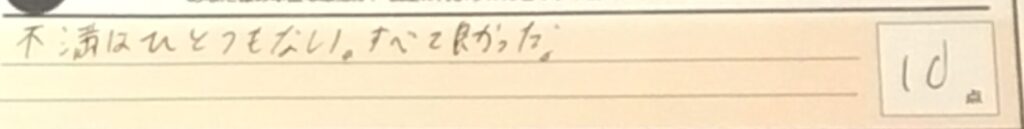 不満はひとつもない。すべて良かった。
10点